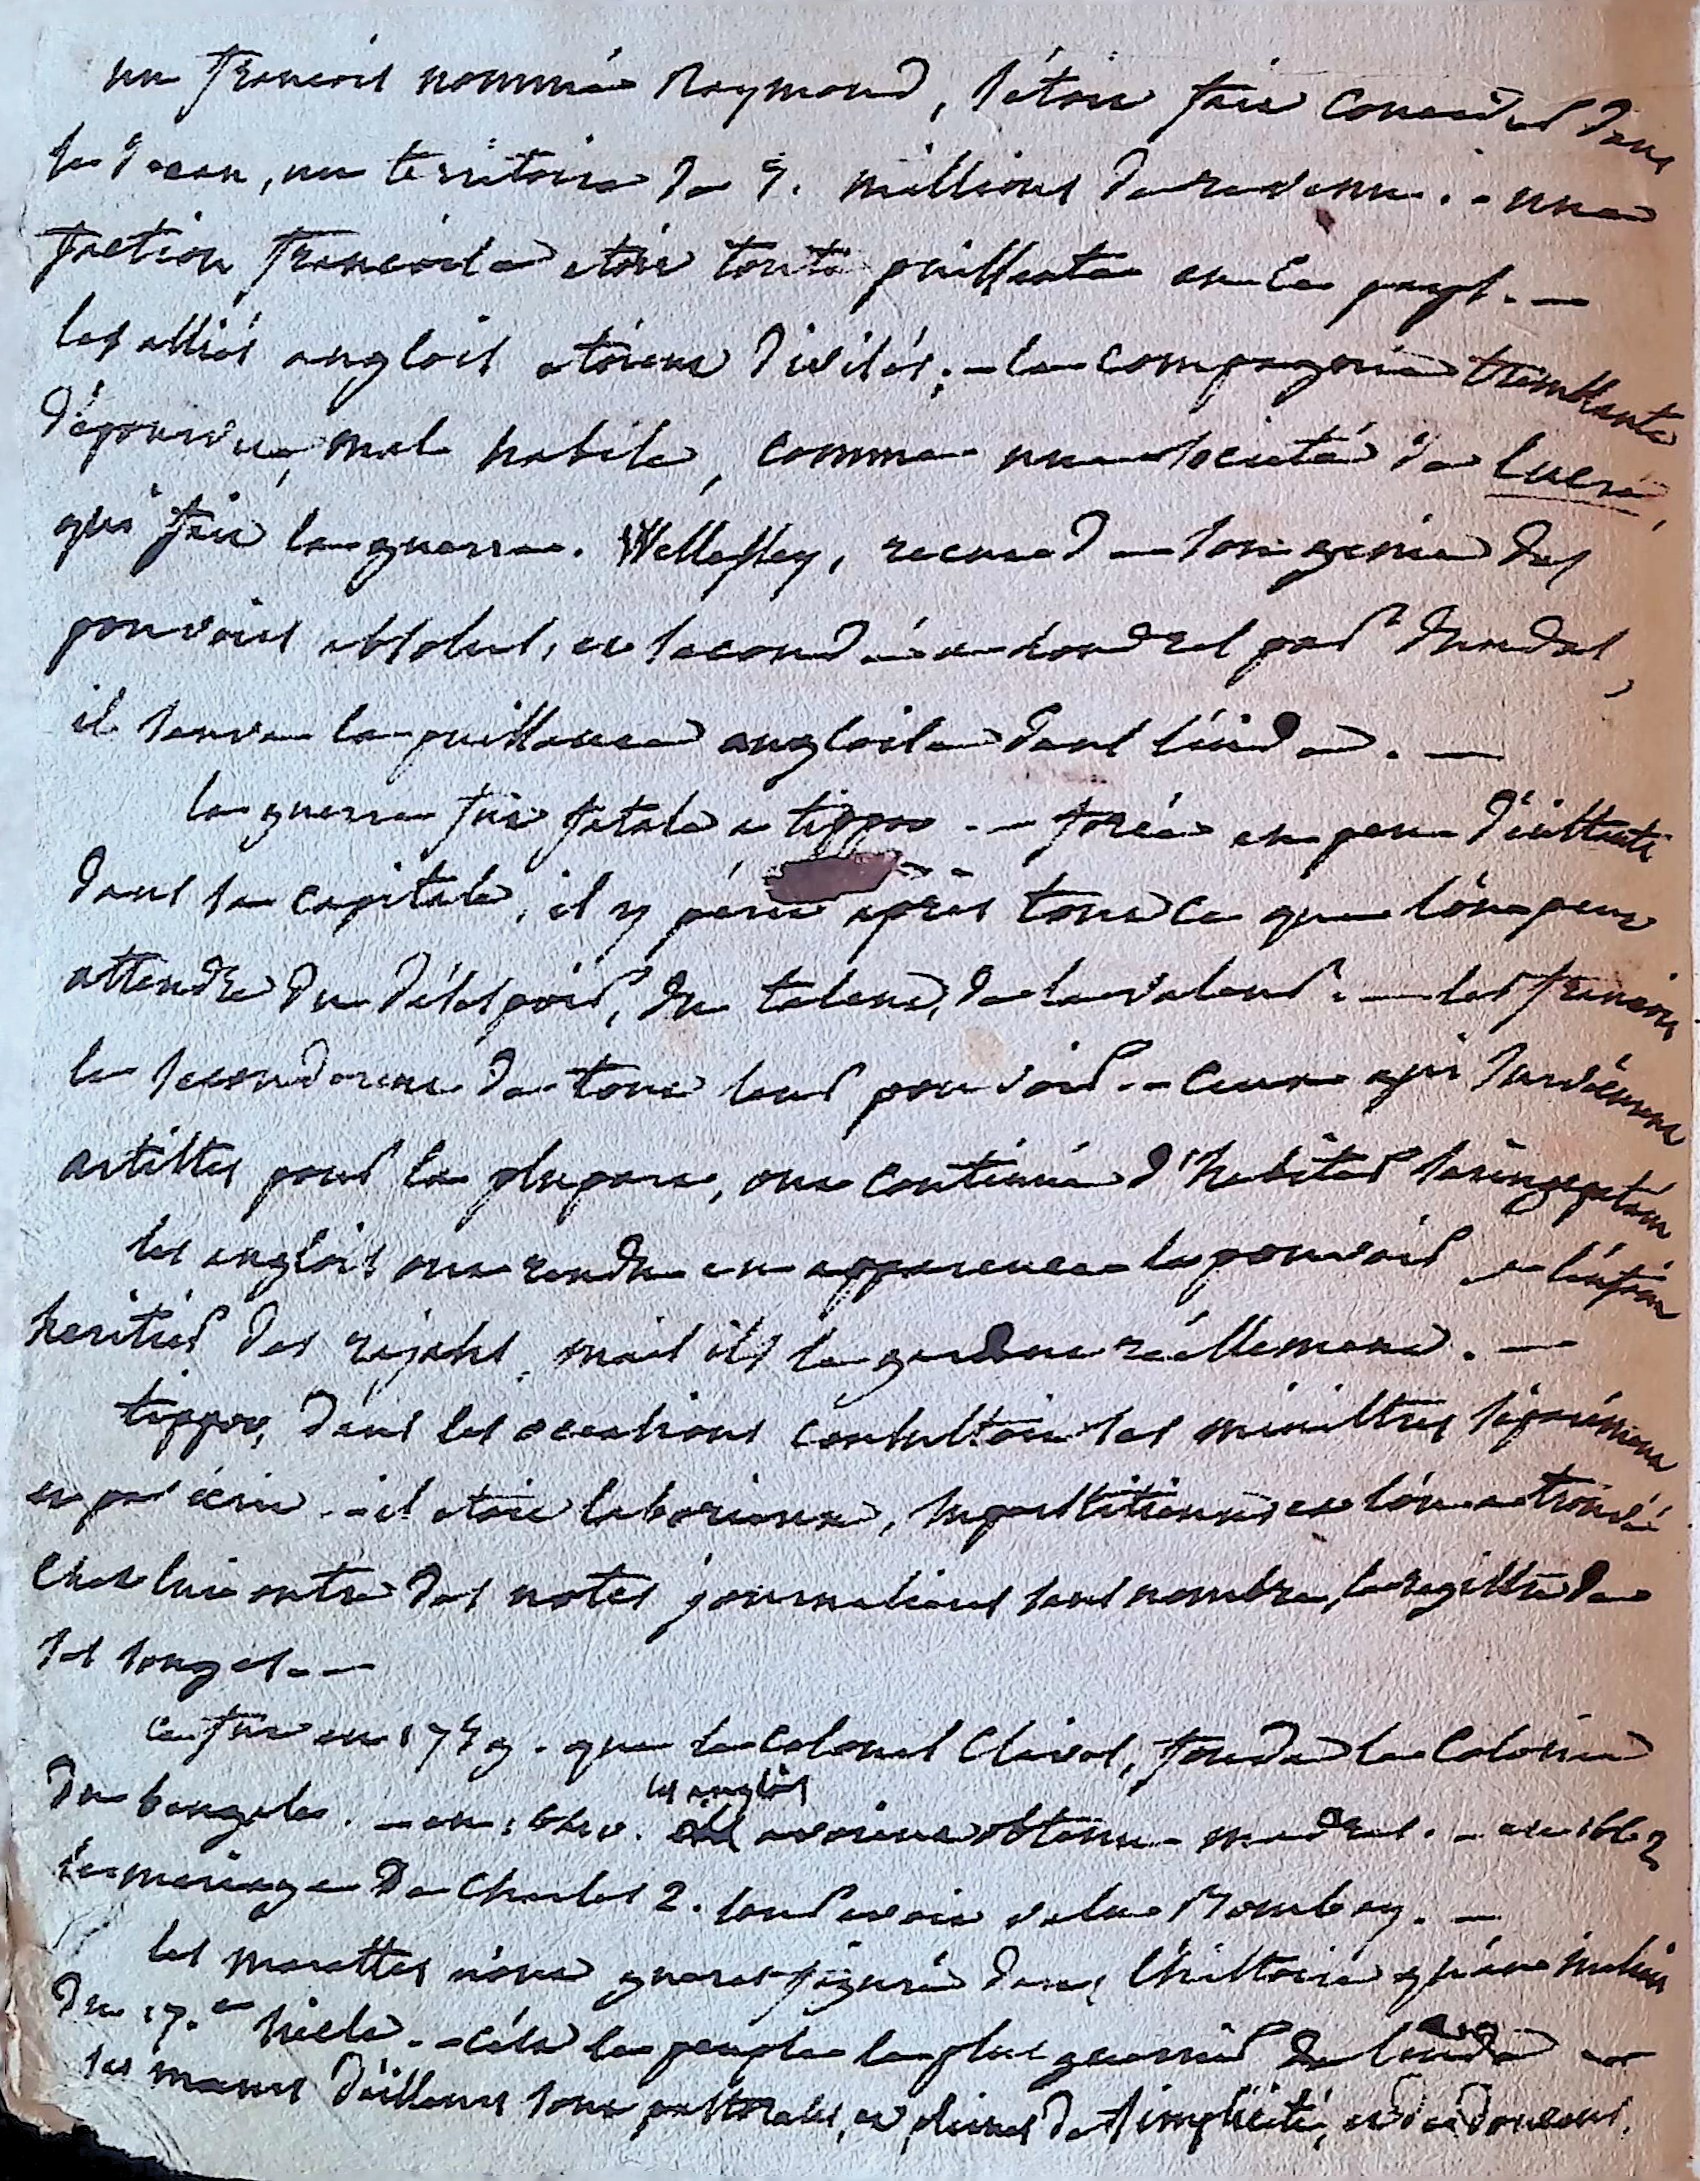 un françois nommé Raymond, s'étoit fait conceder dans
le decan, un territoire de 9. millions de revenu. - une
faction françoise etoit toute puissante en ce pays. -
les alliés anglois etoient divisés; - la compagnie tremblante
dépourvue, mal habile, comme une société de lucre,
qui fait la guerre. Wellesley, reçut de son genie des
pouvoirs absolus, et secondé à londres par dundas,
il sauva la puissance angloise dans l'inde. -
la guerre fut fatale a tippoo. - forcé en peu d'instants
dans sa capitale, il y périt après tout ce que l'on peut
attendre du désespoir, du talent, de la valeur. - les françois
le seconderent de tout leur pouvoir. - ceux qui survécurent
artistes pour la plupart, ont continué d'habiter seringapatam
les anglois ont rendu en apparence le pouvoir a l'enfant
heritier des rajahs, mais ils le gardent réellement. -
tippoo, dans les occasions consultoit ses ministres séparément
et par écrit. - il etoit laborieux, superstitieux et l'on a trouvé
chez lui outre des notes journalieres sans nombre, le registre de
ses songes. -
ce fut en 1749. que le colonel Clives, fonda la colonie
du bengale. - en 1640. les anglois avoient obtenu madras. - en 1662
le mariage de Charles 2. leur avoit valu Bombay. -
les marattes n'ont gueres figuré dans l'histoire qu'au milieu
du 17.e siecle. - c'est le peuple le plus guerrier de l'inde et
ses mœurs d'ailleurs sont pastorales, et pleines de simplicité, et de douceur.